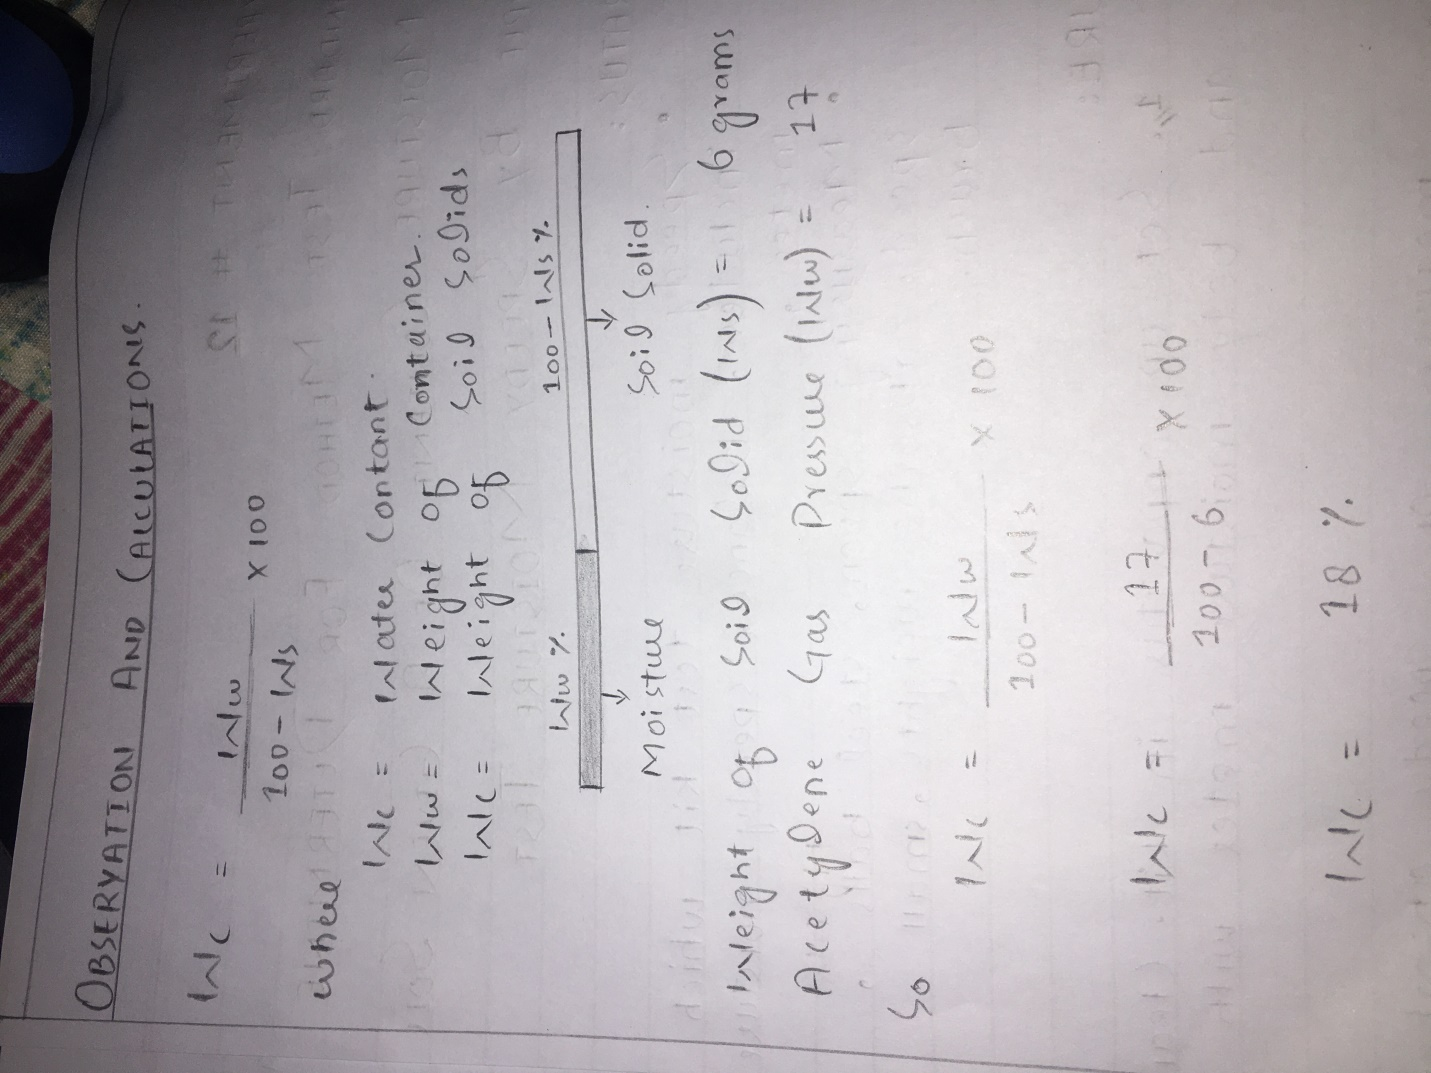 OBSERVATION AND CALCULATIONS.
Wc = Ww / 100 - Ws x 100
where
Wc = Water Contant.
Ww = Weight of Container.
Wc = Weight of Soil Solids
Ww % 100 - Ws %
Moisture Soil Solid.
Weight of Soil Solid (Ws) = 6 grams
Acetylene Gas Pressure (Ww) = 17
So
Wc = Ww / 100 - Ws x 100
Wc = 17 / 100 - 6 x 100
Wc = 18 %